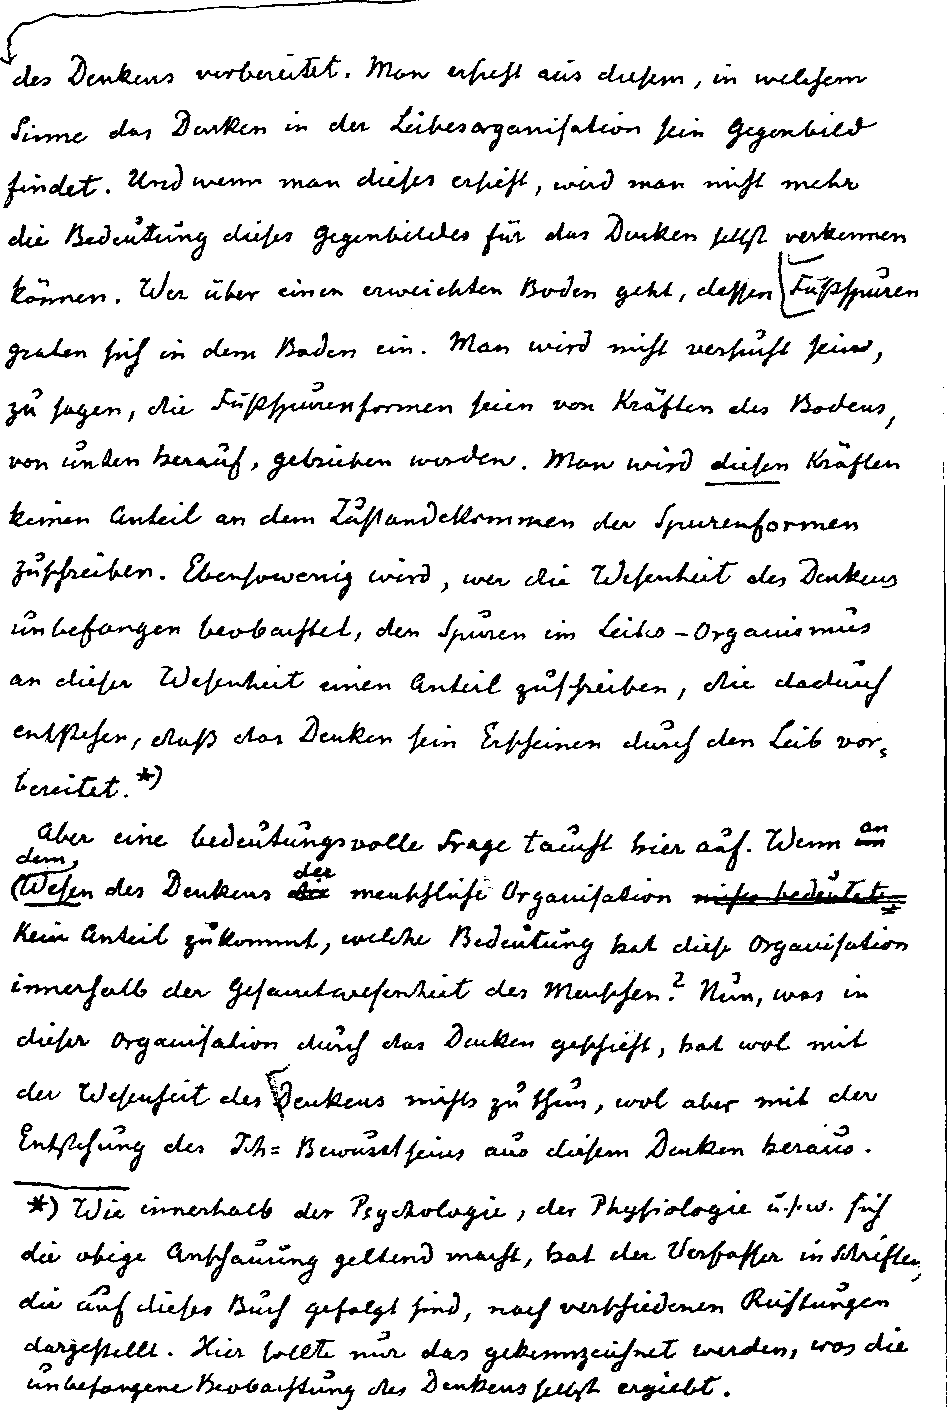 des Denkens vorbereitet. Man ersieht aus diesem, in welchem
Sinne das Denken in der Leibesorganisation sein Gegenbild
findet. Und wenn man dieses ersieht, wird man nicht mehr
die Bedeutung dieses Gegenbildes für das Denken selbst verkennen
können. Wer über einen erweichten Boden geht, dessen Fußspuren
graben sich in dem Boden ein. Man wird nicht versucht sein,
zu sagen, die Fußspurenformen seien von Kräften des Bodens,
von unten herauf, getrieben worden. Man wird diesen Kräften
keinen Anteil an dem Zustandekommen der Spurenformen
zuschreiben. Ebensowenig wird, wer die Wesenheit des Denkens
unbefangen beobachtet, den Spuren im Leibes-Organismus
an dieser Wesenheit einen Anteil zuschreiben, die dadurch
entstehen, daß das Denken sein Erscheinen durch den Leib vor-
bereitet. *)
Aber eine bedeutungsvolle Frage taucht hier auf. Wenn an
dem
Wesen des Denkens der menschlichen Organisation nichts bedeutet
kein Anteil zukommt, welche Bedeutung hat diese Organisation
innerhalb der Gesamtwesenheit des Menschen? Nun, was in
dieser Organisation durch das Denken geschieht, hat wol mit
der Wesenheit des Denkens nichts zu thun, wol aber mit der
Entstehung des Ich= Bewustseins aus diesem Denken heraus.
*) Wie innerhalb der Psychologie, der Physiologie u.s.w. sich
die obige Anschauung geltend macht, hat der Verfasser in Schriften,
die auf dieses Buch gefolgt sind, nach verschiedenen Richtungen
dargestellt. Hier sollte nur das gekennzeichnet werden, was die
unbefangene Beobachtung des Denkens selbst ergiebt.